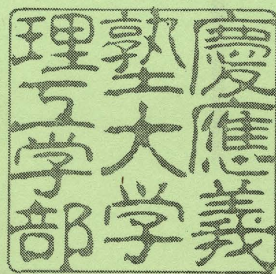 慶應義
塾大学
理工学部